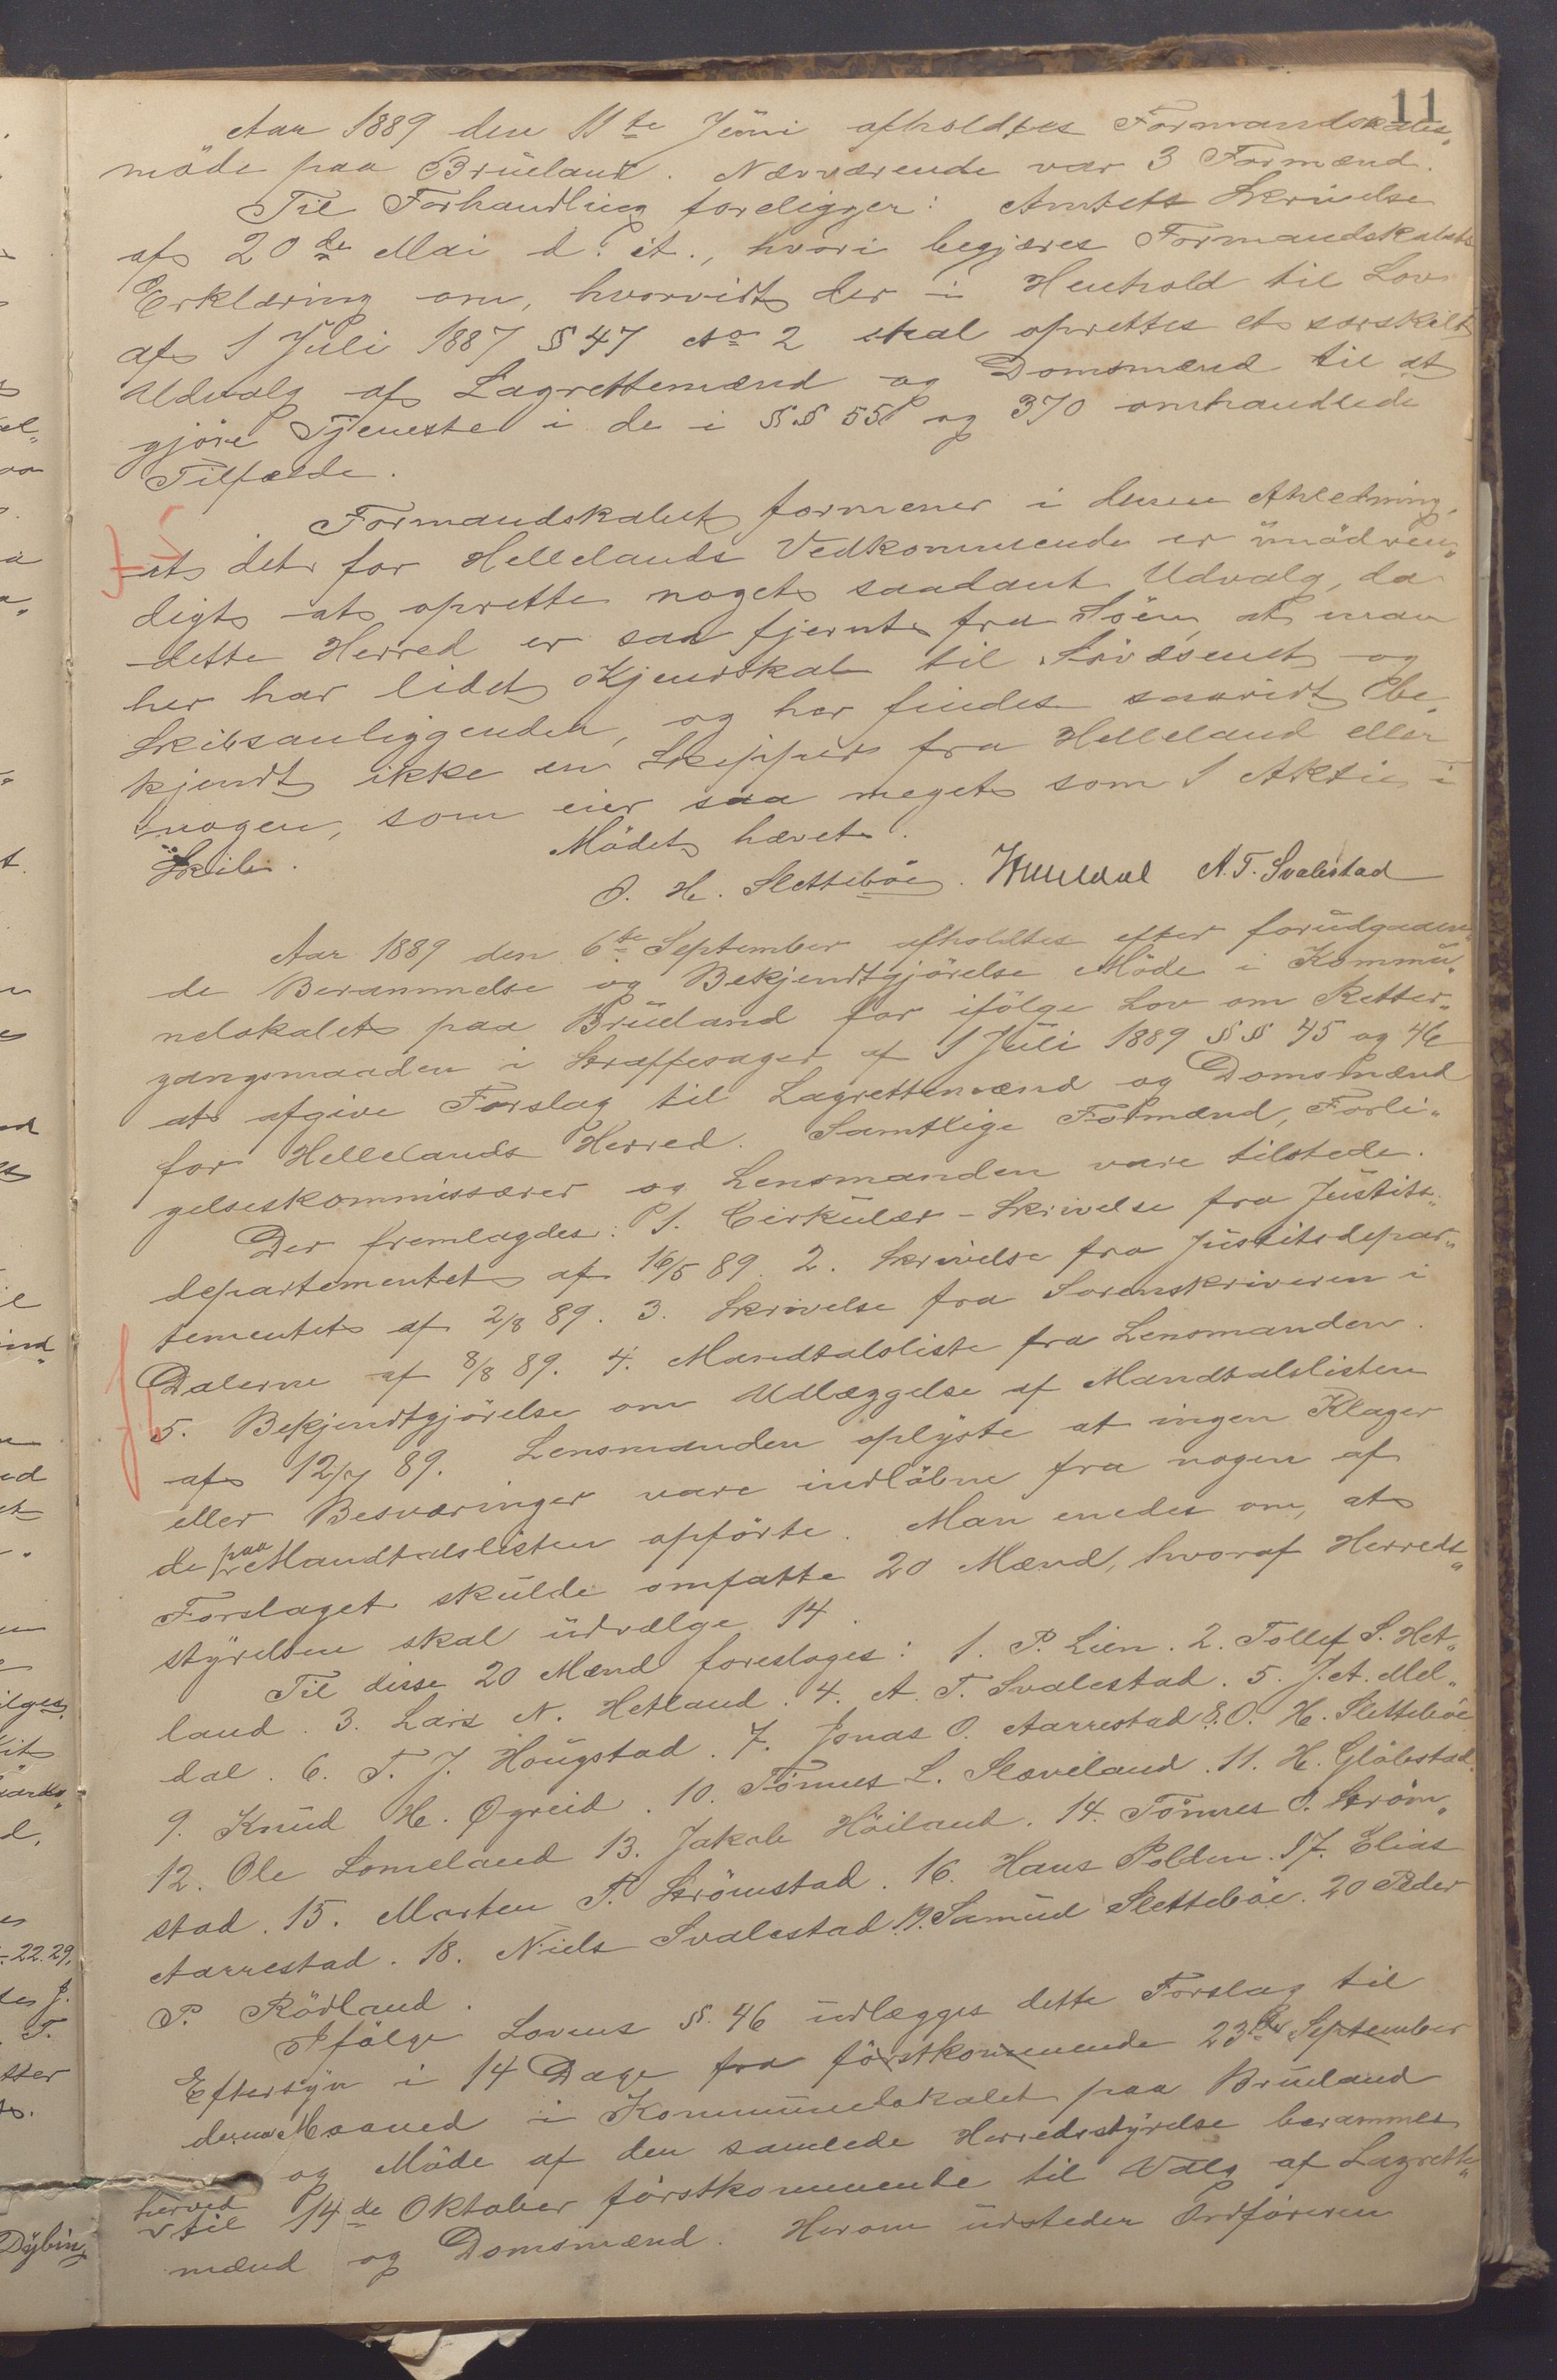 11
Aar 1889 den 11te Juni afholdtes Formandskabs„
möde paa Brueland. Nærværende var 3 Formænd.
Til Forhandling foreligger: Amtets Skrivelse
af 20de Mai d. A., hvori begjæres Formandskabets
Erklæring om, hvorvidt der i Henhold til Lov
af 1 Juli 1887 § 47 No 2 skal oprettes et særskilt
Udvalg af Lagrettemænd og Domsmænd til at
gjöre Tjeneste i de i §§ 55 og 370 omhandlede
Tilfælde.
Formandskabet formener i denne Anledning,
at det for Hellelands Vedkommende er unödven„
digt at oprette noget saadant Udvalg, da
dette Herred er saa fjernt fra Söen, at man
her har lidet Kjendskab til Sövæsenet og
Skibsanliggender, og her findes saavidt be„
kjendt ikke en Skipper fra Helleland eller
nogen, som eier saa meget som 1 Aktie i
Skib.
Mödet hævet.
O. H. Sletteböe. A. T. Svalestad
Aar 1889 den 6te September afholdtes efter forudgaaen„
de Berammelse og Bekjendtgjörelse Möde i Kommu„
nelokalet paa Brueland for ifölge Lov om Retter„
gangsmaaden i Straffesager af 1 Juli 1889 §§ 45 og 46
at afgive Forslag til Lagrettemænd og Domsmænd
for Hellelands Herred. Samtlige Formænd, Forli„
gelseskommissærer og Lensmanden vare tilstede.
Der fremlagdes: 1. Cirkulær-Skrivelse fra Justits„
departementet af 16/5 89. 2. Skrivelse fra Justitsdepar„
tementet af 2/8 89. 3. Skrivelse fra Sorenskriveren i
Dalerne af 8/8 89. 4. Mandtalsliste fra Lensmanden.
5. Bekjendtgjörelse om Udlæggelse af Mandtalslisten
af 12/7 89. Lensmanden oplyste at ingen Klager
eller Besværinger vare indlöbne fra nogen af
de paa Mandtalslisten opförte. Man enedes om, at
Forslaget skulde omfatte 20 Mænd, hvoraf Herreds„
styrelsen skal udvælge 14.
Til disse 20 Mænd foreslages: 1. P. Lien. 2. Tollef S. Het„
land. 3. Lars N. Hetland. 4. A. T. Svalestad. 5. J. A. Mel„
dal. 6. T. J. Hougstad. 7. Jonas O. Aarrestad 8. O. H. Sletteböe
9. Knud H. Øgreid. 10. Tönnes L. Skaveland. 11. H. Glöbstad.
12. Ole Lomeland 13. Jakob Höiland. 14. Tönnes O. Ström„
stad. 15. Morten T. Strömstad. 16. Hans Polden. 17. Elias
Aarrestad. 18. Niels Svalestad. 19. Samuel Sletteböe. 20 Peder
P. Rödland.
Ifölge Lovens § 46 udlægges dette Forslag til
Eftersyn i 14 Dage fra förstkommende 23de September
denne Maaned i Kommunelokalet paa Brueland
og Möde af den samlede Herredsstyrelse berammes
herved
til 14de Oktober förstkommende til Valg af Lagrette„
mænd og Domsmænd. Herom udsteder Ordföreren